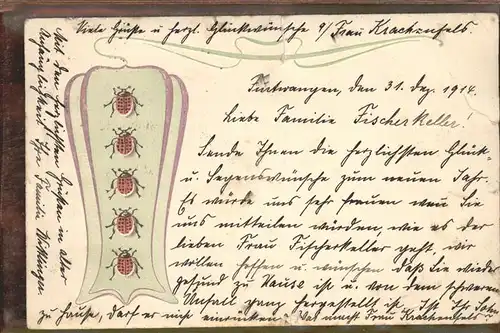 Viele Grüße u herzl. Glückwünsche a/ Frau Krachenfels.
Furtwangen, den 31. Dez. 1914.
Liebe Familie Fischerkeller!
Sende Ihnen die herzlichsten Glück-
u. Segenswünsche zum neuen Jahr.
Es würde uns sehr freuen wen Sie
uns mitteilen würden, wie es der
lieben Frau Fischerkeller geht, wir
wollen hoffen u. wünschen daß Sie wieder
gesund zu Hause ist u. von dem schweren
Unfall ganz hergestellt ist. Ist Ihr
zu Hause, darf er nicht einrücken. Was macht Frau Krachenfels
Mit den herzlichsten Grüßen in alter
Anhänglichkeit Ihre Familie